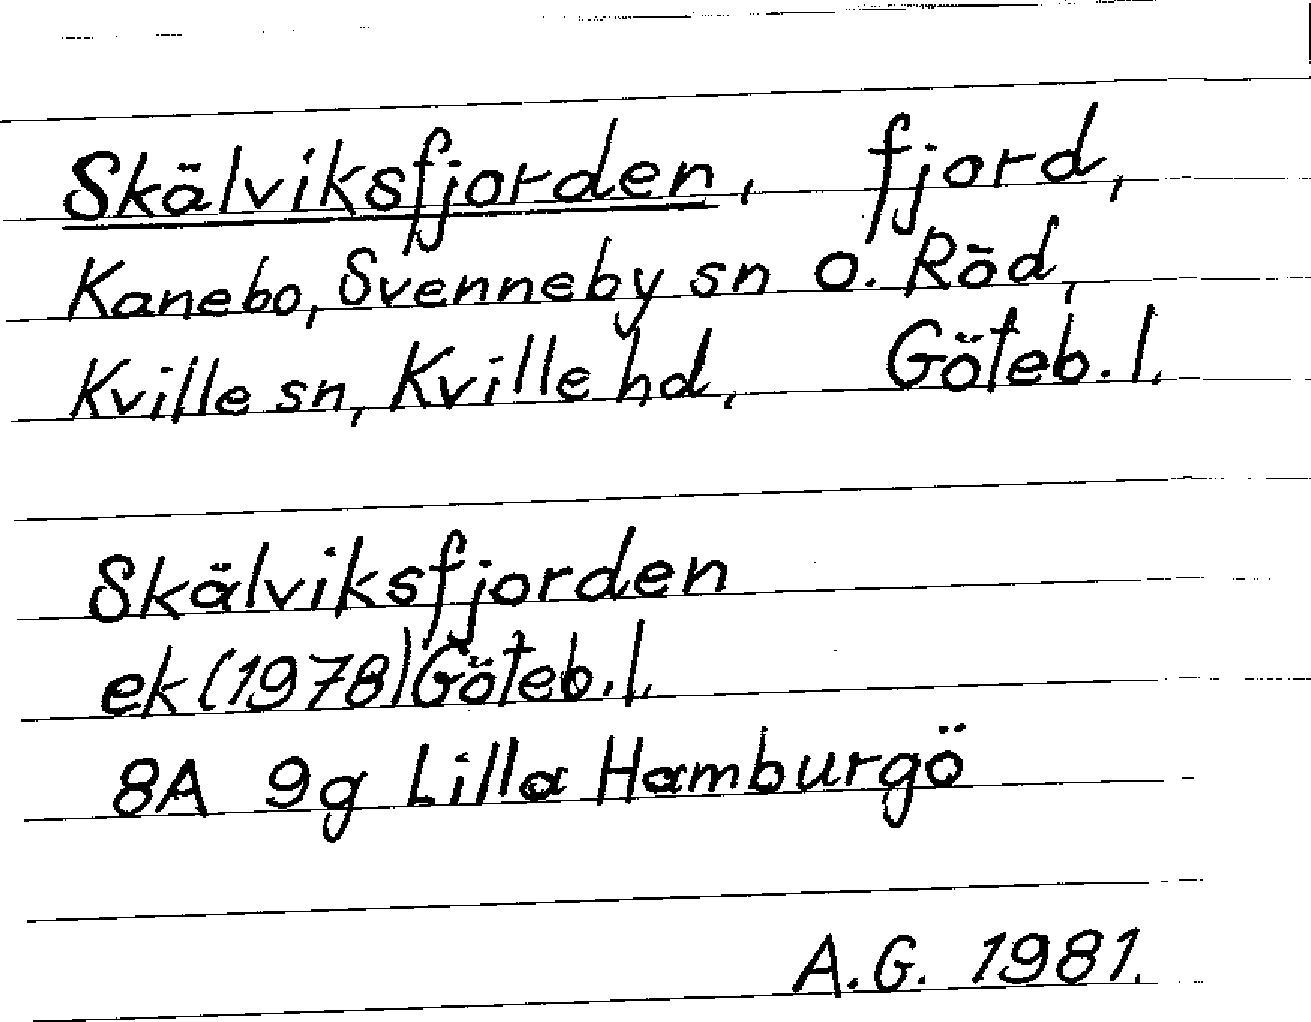 Skälviksfjorden, fjord,
Kanebo, Svenneby sn o. Röd,
Kville sn, Kville hd, Göteb. l.
Skälviksfjorden
ek (1978) Göteb. l.
8A 9g Lilla Hamburgö
A.G. 1981.